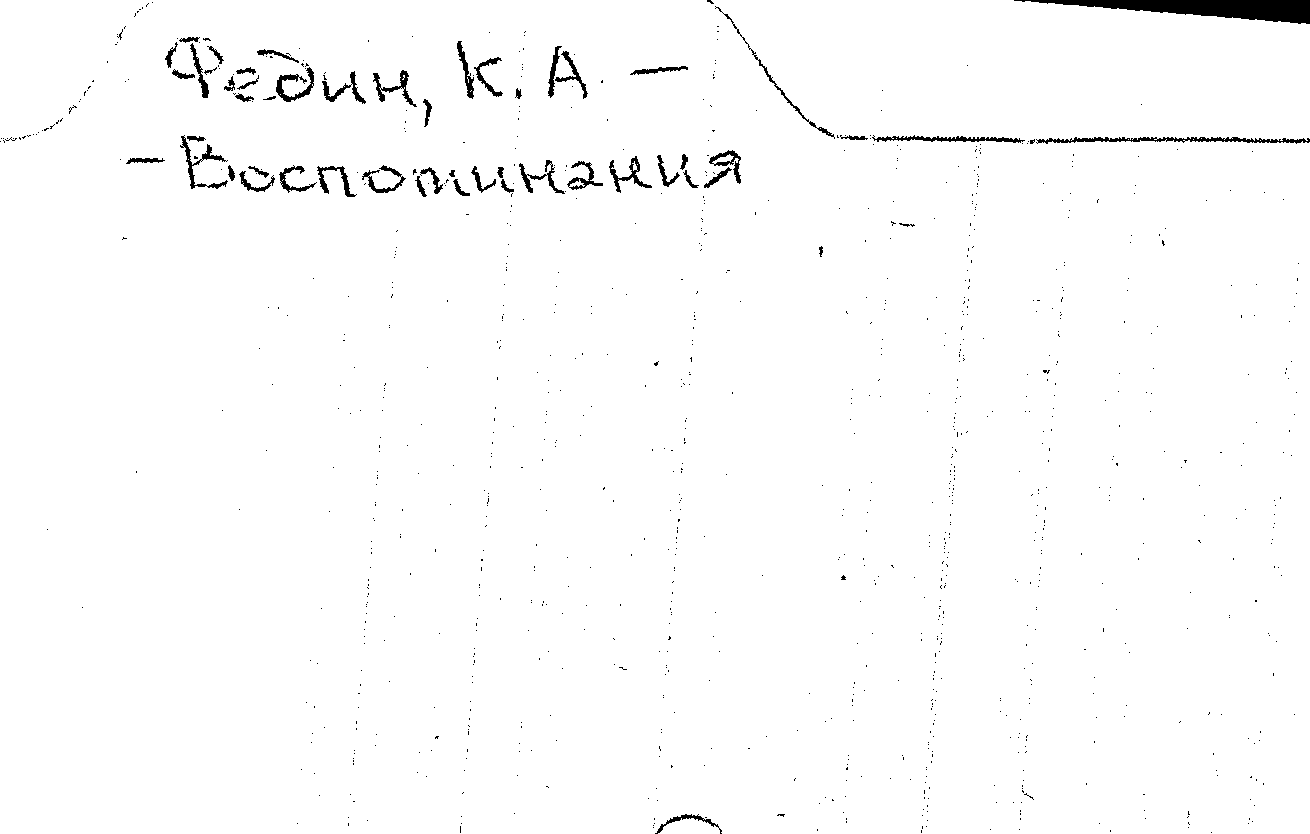 Федин, К. А —
— Воспоминания